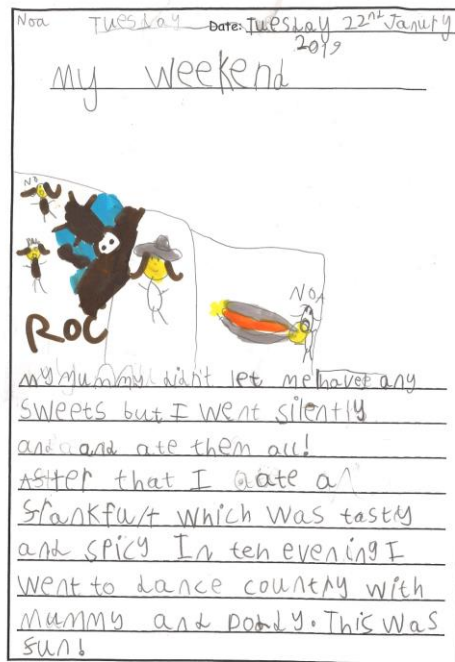 Noa TUESDAY Date: TUESDAY 22nd Janury
2019
My weekend
NO
ROC
NOA
my Mummy didn't let me havee any
sweets but I went silently
and and ate them all!
After that I aate a
frankfurt which was tasty
and spicy In teh evening I
went to dance country with
Mummy and Daddy. This was
fun!